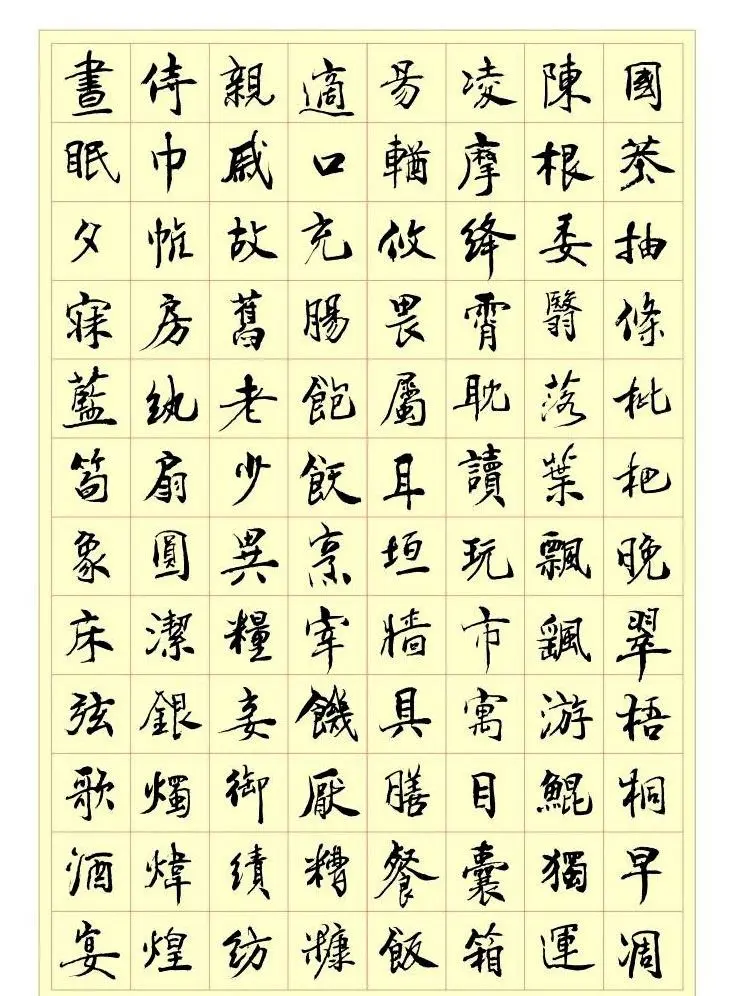 園莽抽條枇杷晚翠梧桐早凋
陳根委翳落葉飄飖游鯤獨運
凌摩絳霄耽讀玩市寓目囊箱
易輶攸畏屬耳垣牆具膳餐飯
適口充腸飽飫烹宰饑厭糟糠
親戚故舊老少異糧妾御績紡
侍巾帷房紈扇圓潔銀燭煒煌
晝眠夕寐藍筍象床弦歌酒宴